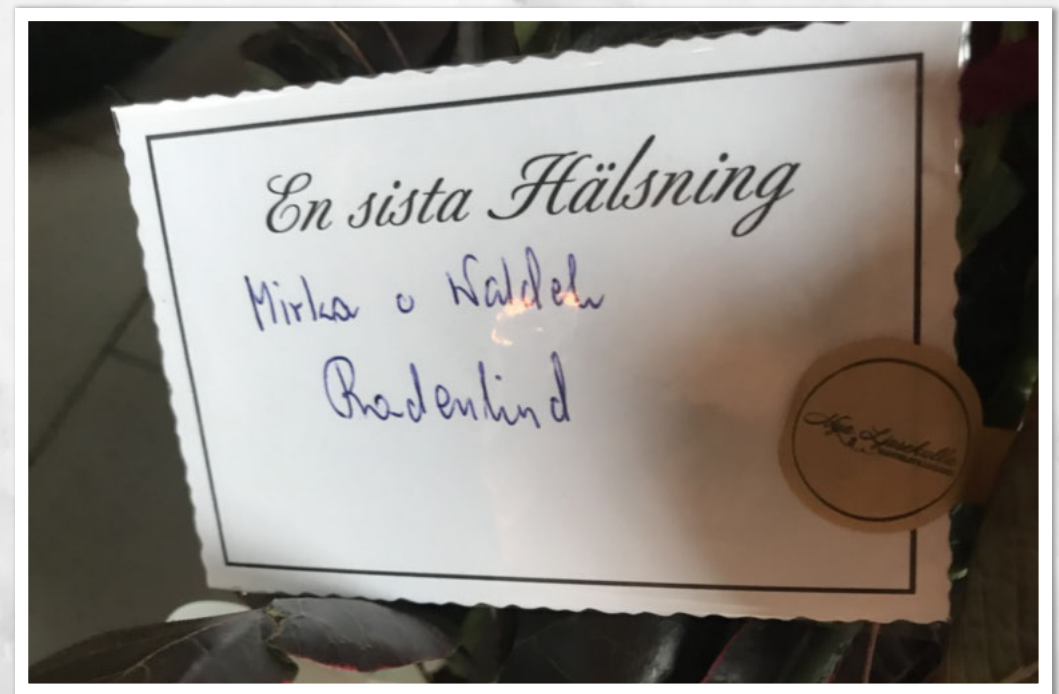 En sista Hälsning
Mirka o Waldek
Rodenlind